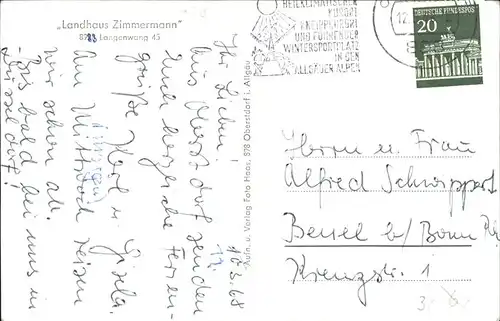 „Landhaus Zimmermann"
Langenwang 45
HEILKLIMATISCHER
KURORT
KNEIPPKURORT
WINTERSPORTPLATZ
IN DEN
ALLGÄUER ALPEN
12.
DEUTSCHE BUNDESPOST
20
16.3.68
17.
Ihr Lieben!
Aus Oberstdorf senden
Euch herzliche Ferien-
grüße u. Gisela.
Am Mittwoch reisen
(morgen)
wir schon ab.
Bis bald bei uns in
Düsseldorf!
Aufn. u. Verlag Foto Haas, 898 Oberstdorf i. Allgäu
Herrn u. Frau
Alfred Schwippert
Beuel b/ Bonn Rh
Kreuzstr. 1